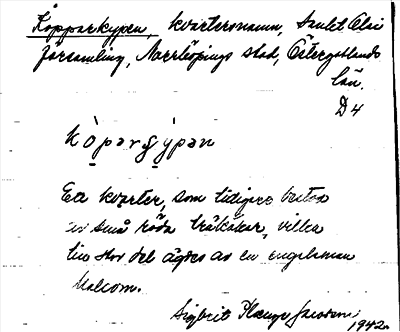 Kopparkypen, kvartersnamn, Sankt Olai
församling, Norrköpings stad, Östergötlands
län.
D4
kòparȿýpan
Ett kvarter, som tidigare bestod
av små röda träkåkar, vilka
till stor del ägdes av en engelsman
Malcom.
Sigbrit Plænge Jacobson,
1942.